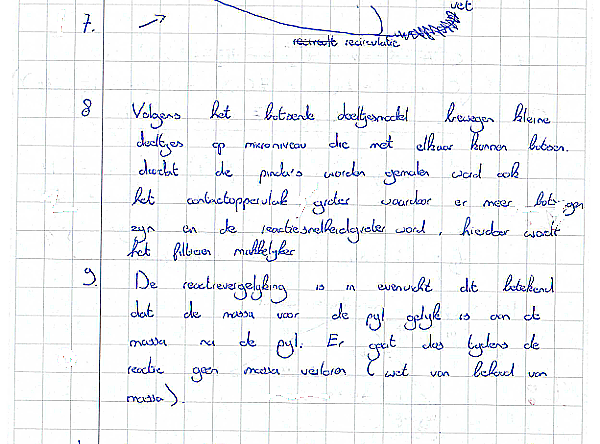 vet
7.
recirculatie
8 Volgens het botsende deeltjesmodel bewegen kleine
deeltjes op microniveau die met elkaar kunnen botsen.
doordat de pinda's worden gemalen word ook
het contactoppervlak groter waardoor er meer botsingen
zijn en de reactiesnelheid groter word, hierdoor wordt
het filteren makkelijker
9. De reactievergelijking is in evenwicht dit betekend
dat de massa voor de pijl gelijk is aan de
massa na de pijl. Er gaat dus tijdens de
reactie geen massa verloren (wet van behoud van
massa).